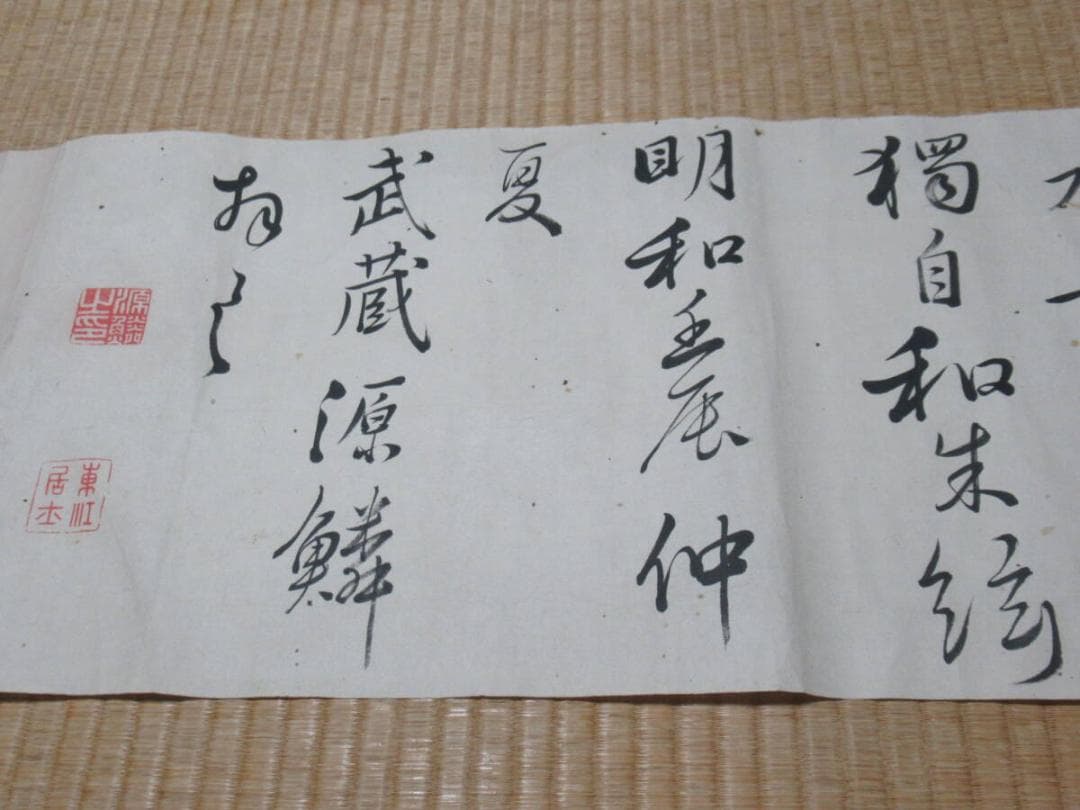 獨自和朱絃
明和壬辰仲
夏
武蔵源鱗
書
源鱗之印
東江居士